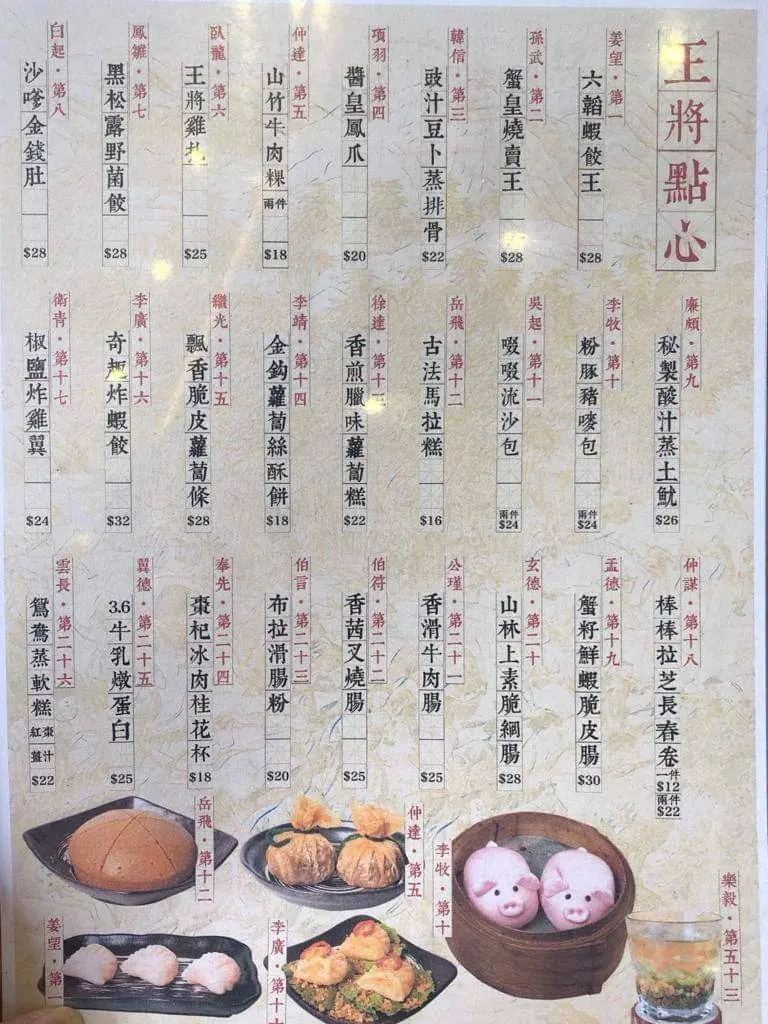 王將點心
姜望・第一
六韜蝦餃王
$28
孫武・第二
蟹皇燒賣王
$28
韓信・第三
豉汁豆卜蒸排骨
$22
項羽・第四
醬皇鳳爪
$20
仲達・第五
山竹牛肉粿 兩件
$18
臥龍・第六
王將雞扎
$25
鳳雛・第七
黑松露野菌餃
$28
白起・第八
沙嗲金錢肚
$28
廉頗・第九
秘製酸汁蒸土魷
$26
李牧・第十
粉豚豬嘜包
兩件
$24
吳起・第十一
啜啜流沙包
兩件
$24
岳飛・第十二
古法馬拉糕
$16
徐達・第十三
香煎臘味蘿蔔糕
$22
李靖・第十四
金鈎蘿蔔絲酥餅
$18
繼光・第十五
飄香脆皮蘿蔔條
$28
李廣・第十六
奇趣炸蝦餃
$32
衛青・第十七
椒鹽炸雞翼
$24
仲謀・第十八
棒棒拉芝長春卷
一件
$12
兩件
$22
孟德・第十九
蟹籽鮮蝦脆皮腸
$30
玄德・第二十
山林上素脆網腸
$28
公瑾・第二十一
香滑牛肉腸
$25
伯符・第二十二
香茜叉燒腸
$25
伯言・第二十三
布拉滑腸粉
$20
奉先・第二十四
棗杞冰肉桂花杯
$18
翼德・第二十五
3.6牛乳燉蛋白
$25
雲長・第二十六
鴛鴦蒸軟糕
紅棗
薑汁
$22
岳飛・第十二
仲達・第五
李牧・第十
樂毅・第五十三
姜望・第一
李廣・第十六